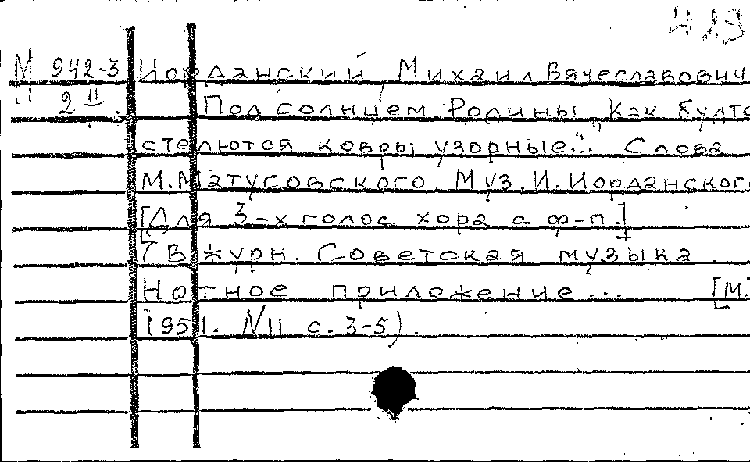 419
М 942-3 Иорданский, Михаил Вячеславович
2 II Под солнцем Родины. „Как будто
стелются ковры узорные..." Слова
М. Матусовского. Муз. И. Иорданского
[Для 3-х голос хора с ф-п.]
(В журн. Советская музыка.
Нотное приложение... [М.
1951. №11 с. 3-5).